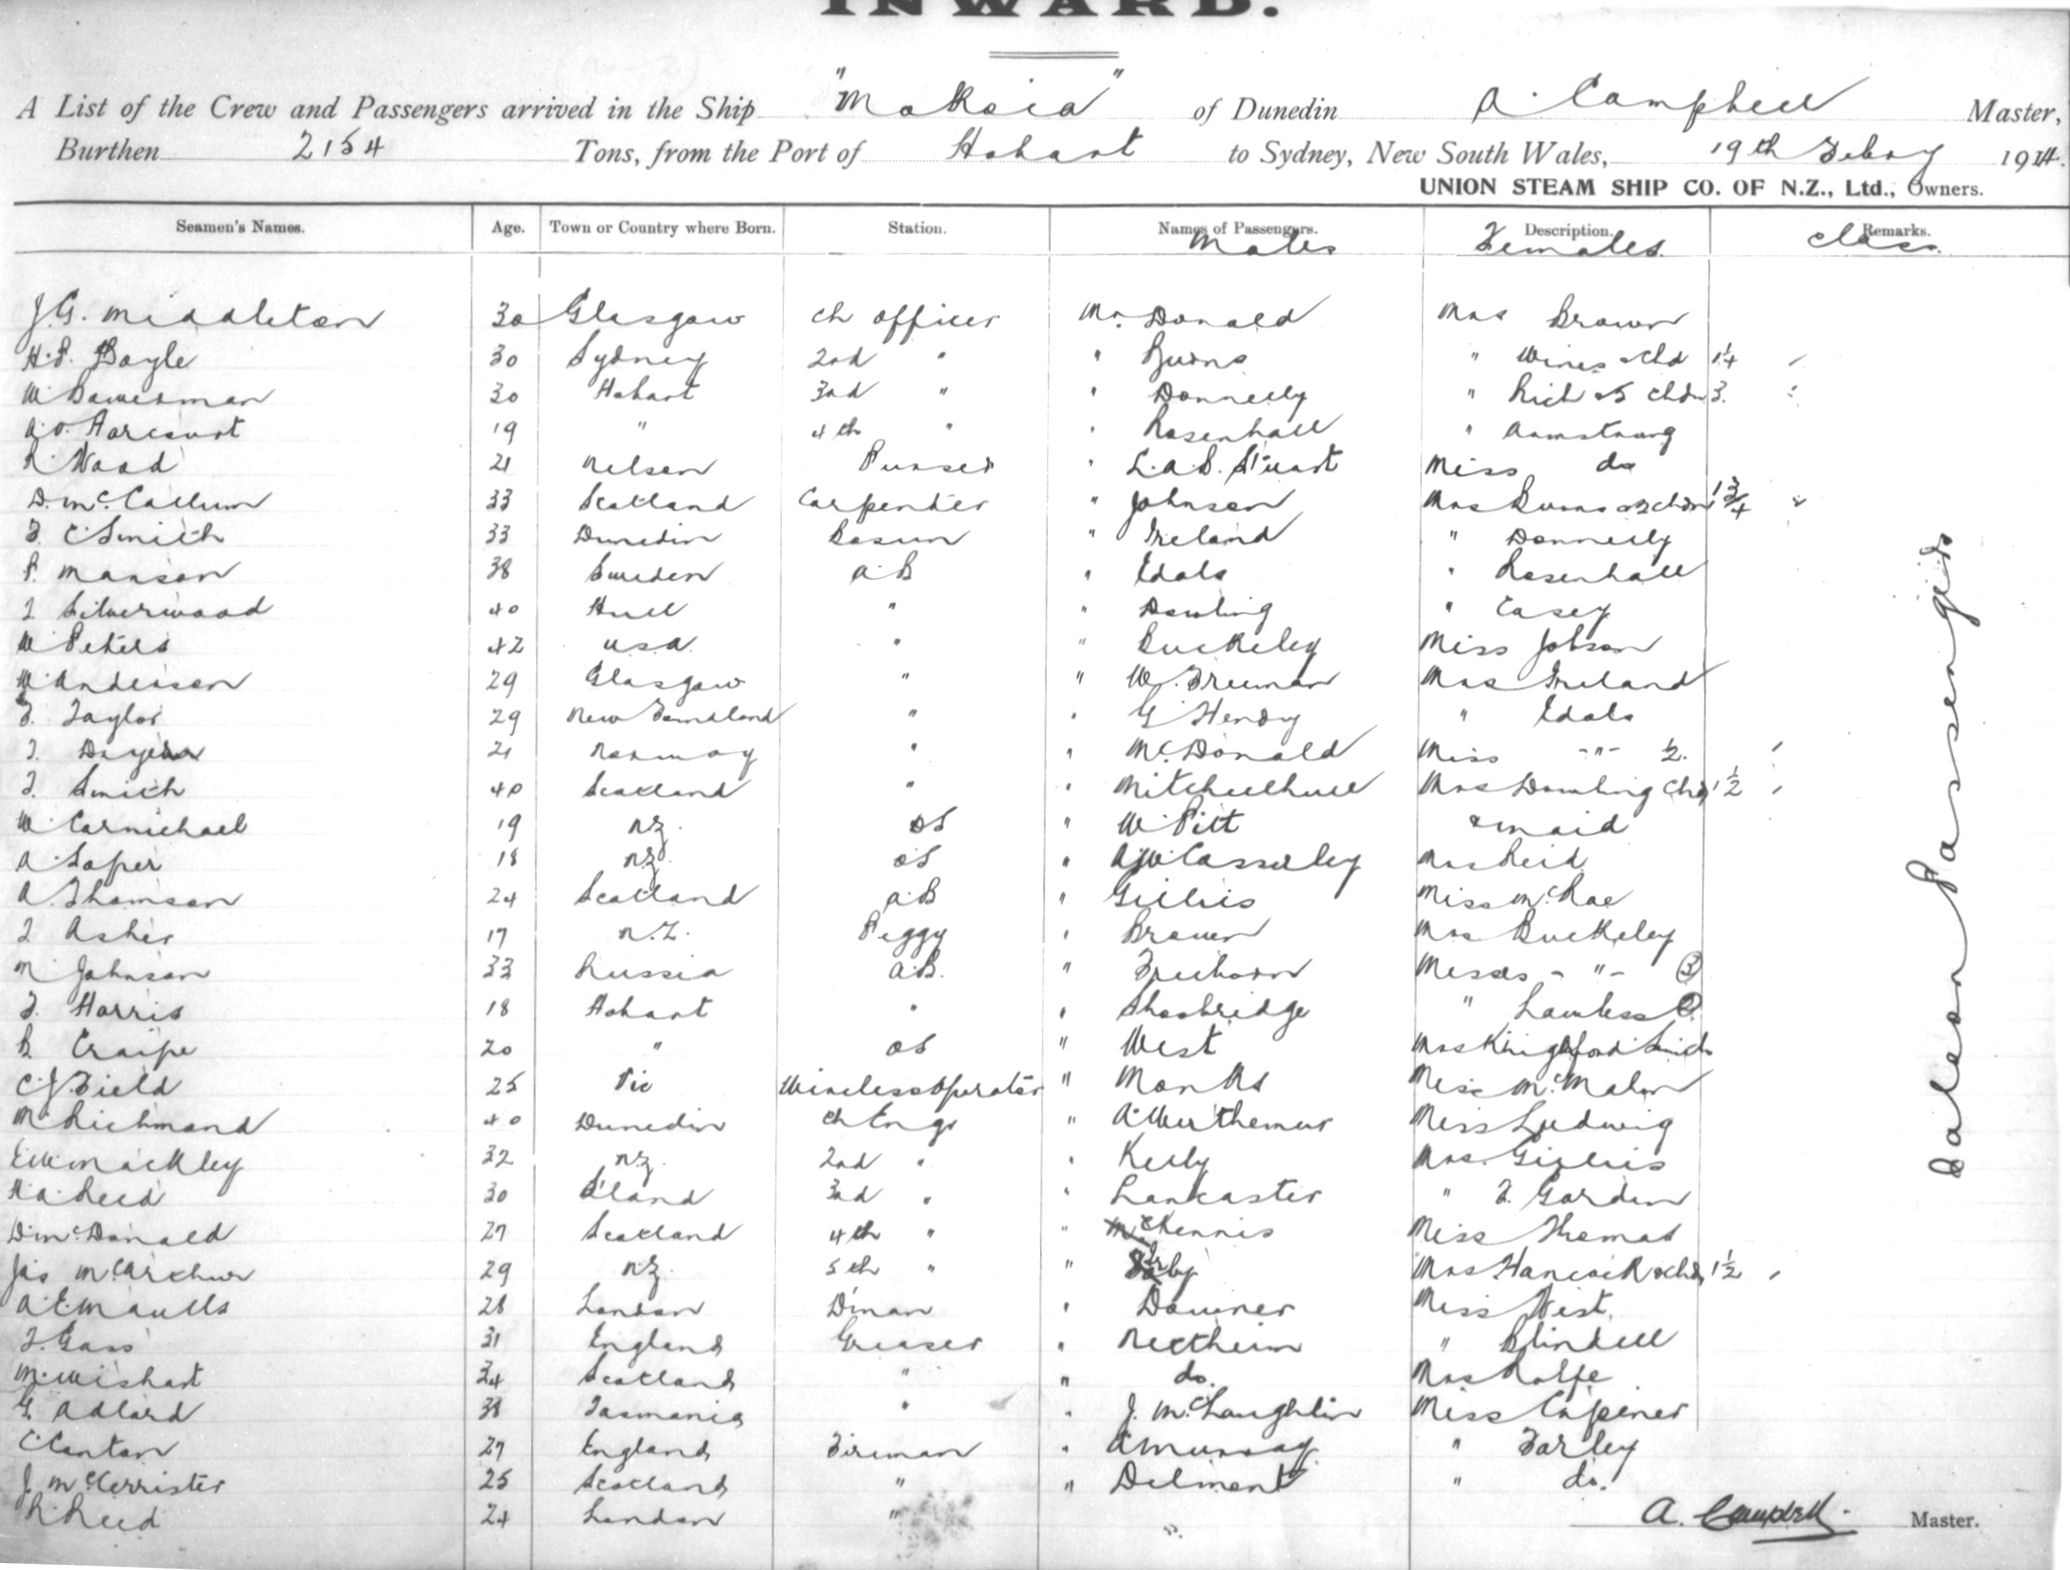 INWARD.
A List of the Crew and Passengers arrived in the Ship "Mokoia" of Dunedin A. Campbell Master,
Burthen 2154 Tons, from the Port of Hobart to Sydney, New South Wales, 19th Febry 1914.
UNION STEAM SHIP CO. OF N.Z., Ltd., Owners.
Seamen's Names. Age. Town or Country where Born. Station. Names of Passengers. Description. Remarks.
Males Females class
J.G. Middleton 30 Glasgow ch officer Mr. Donald Mrs Brown
H.P. Boyle 30 Sydney 2nd " " Burns " Wines & chd 1¼
W Bowerman 30 Hobart 3rd " " Donnelly " Rich & 5 chdn 3.
A.O. Harcourt 19 " 4th " " Rosenhall " Armstrong
R. Wood 21 Nelson Purser " L.A.S. Stuart Miss do
D. McCallum 33 Scotland Carpenter " Johnson Mrs Burns & 3 chdn 1¾ "
F. C Smith 33 Dunedin Bosun " Ireland " Donnelly
P. Manson 38 Sweden A.B " Edals " Rosenhall
J Silverwood 40 Hull " " Dowling " Casey
W Peters 42 USA. " " Buckeley Miss Jobson
W. Anderson 29 Glasgow " " W. Freeman Mrs Ireland
F. Taylor 29 New Foundland " " G Hendy " Edals
21 Norway " " McDonald Miss -"- ½
J. Smith 40 Scotland " " Mitchelhill Mrs Dowling chd 1½
W. Carmichael 19 NZ. OS " W. Pitt & maid
A. Soper 18 NZ. OS " A.W. Casserley Mrs Reid
A. Thomson 24 Scotland A.B " Gillies Miss McRae
J Asher 17 N.Z. Peggy " Brown Mrs Buckeley
M Johnson 33 Russia A.B. " Freeborn Misses -"- (3)
F. Harris 18 Hobart " " Shoobridge " Lawless
B. Craipe 20 " OS " West Mrs Kingsford Smith
C.J. Field 25 Vic Wireless Operator " Monks Miss McMahon
M. Richmond 40 Dunedin ch Engr " A. Wertheimer Miss Ludwig
E.W. Mackley 32 NZ. 2nd " " Kelly Mrs. Gillies
H.A. Reed 30 S'land 3rd " " Lancaster " F. Garden
D. McDonald 27 Scotland 4th " " McKennis Miss Thomas
Jas McArthur 29 NZ. 5th " " Mrs Hancock & chd, 1½
A.E. Maulls 28 London Dman " Downer Miss West.
J. Gass 31 England Greaser " Nettheim " Blundell
M. Wishart 34 Scotland " " do. Mrs Rolfe
G. Adlard 38 Tasmania " " J. McLaughlin Miss Capiner
C Canton 27 England Fireman " A Murray " Farley
J. McKerrister 25 Scotland " " Delmont " do.
R. Reed 24 London "
Saloon Passengers
A. Campbell. Master.